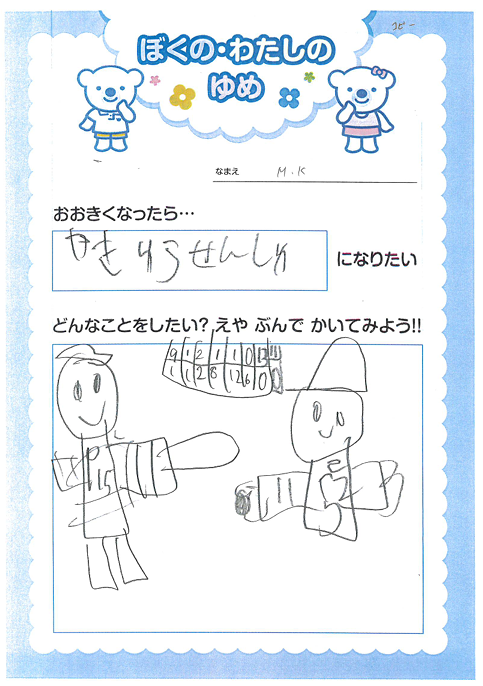 コピー
ぼくの・わたしの
ゆめ
なまえ M.K
おおきくなったら…
やきゅうせんしゅ
になりたい
どんなことをしたい？えや ぶんで かいてみよう!!
9 1 2 1 1 0 12
1 1 2 8 12 6 0